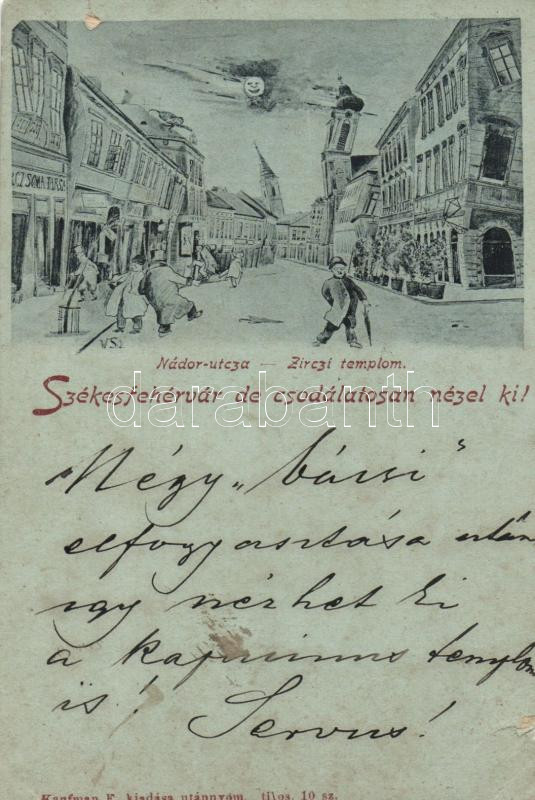 CZ SOMA
VSI
Nádor-utcza — Zirczi templom.
Székesfehérvár de csodálatosan nézel ki!
darabanth
Négy „bácsi"
elfogyasztása után
így nézhet ki
a kapucinus templom
is! Servus!
Kaufman F. kiadása utánnyom. tilos. 10 sz.